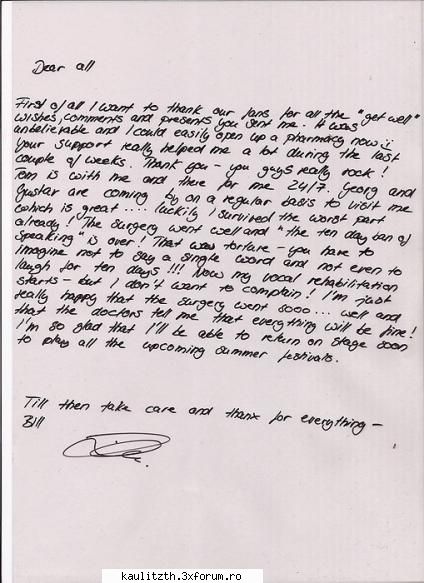 Dear all
First of all I want to thank our fans for all the "get well"
wishes, comments and presents you sent me. It was
unbelievable and I could easily open up a pharmacy now :)
Your support really helped me a lot during the last
couple of weeks. Thank you - you guys really rock!
Tom is with me and there for me 24/7. Georg and
Gustav are coming by on a regular basis to visit me
which is great.... luckily I survived the worst part
already! The surgery went well and "the ten day ban of
speaking" is over! That was torture - you have to
imagine not to say a single word and not even to
laugh for ten days!!! Now my vocal rehabilitation
starts - but I don't want to complain! I'm just
really happy that the surgery went sooo... well and
that the doctors tell me that everything will be fine!
I'm so glad that I'll be able to return on stage soon
to play all the upcoming summer festivals.
Till then take care and thanx for everything -
Bill
kaulitzth.3xforum.ro